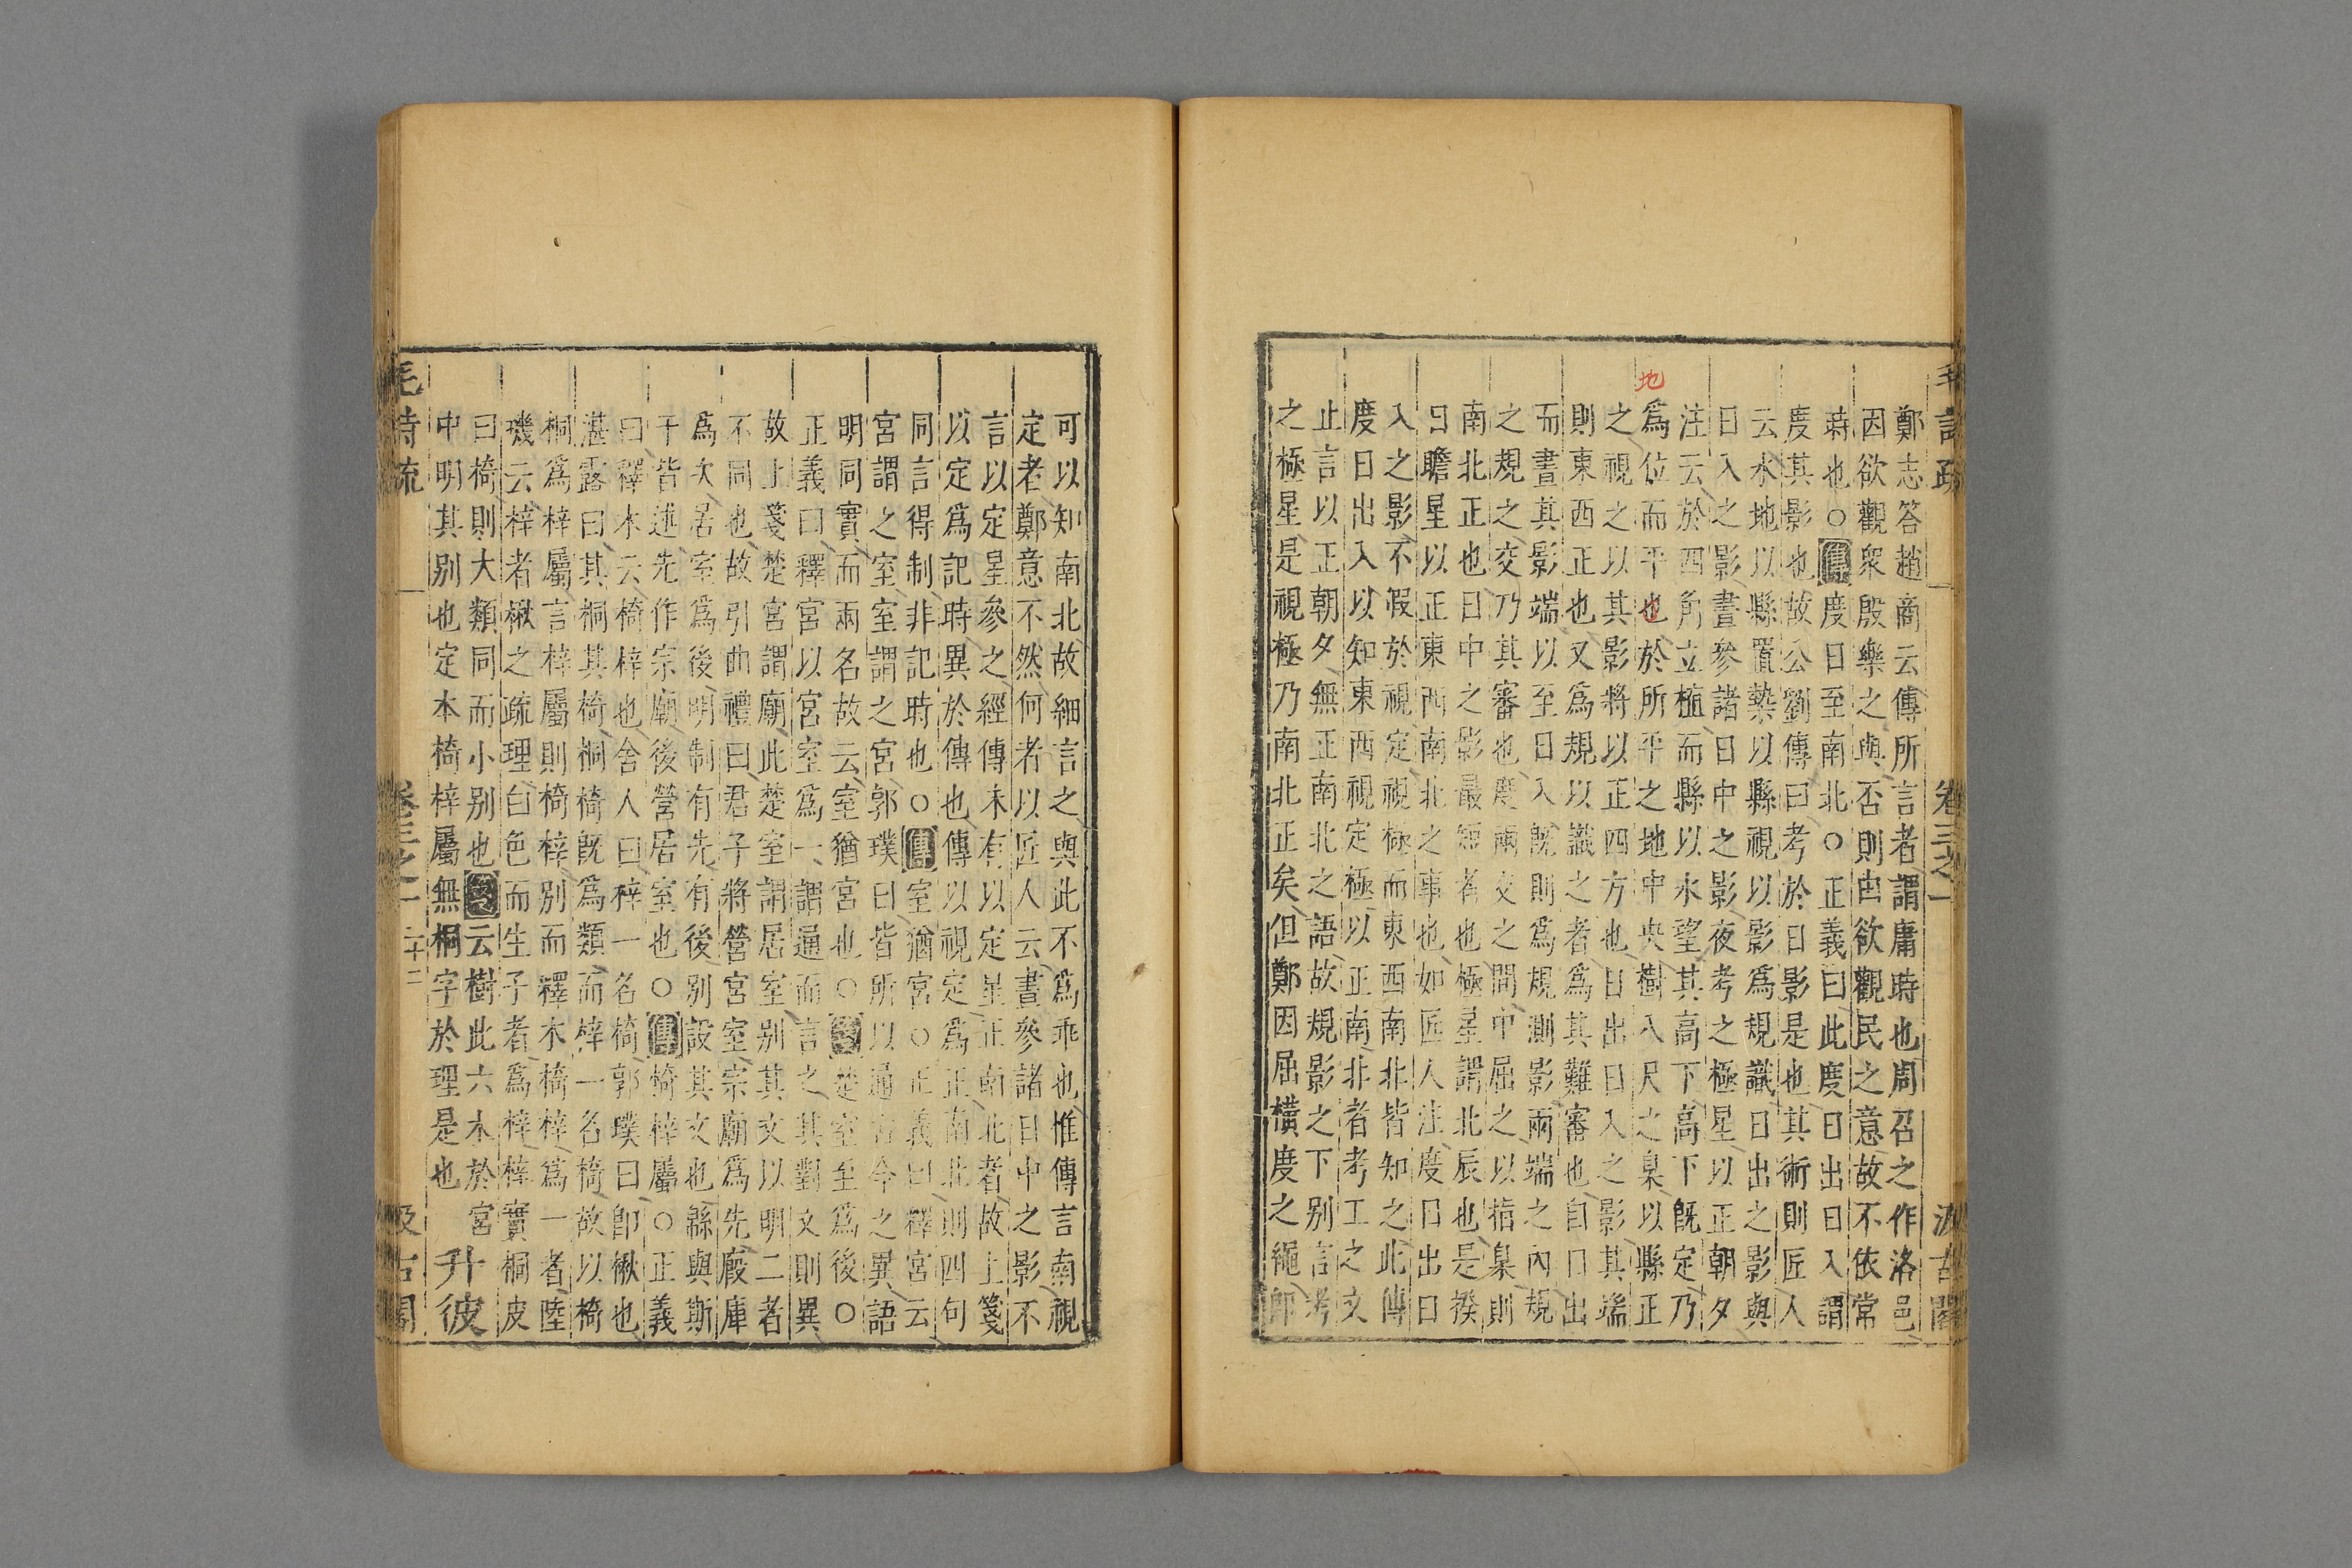 毛詩疏
卷三之一
汲古閣
鄭志答趙商云傳所言者謂庸時也周召之作洛邑
因欲觀衆殷樂之與否則由欲觀民之意故不依常
時也○傳度日至南北○正義曰此度日出日入謂
度其影也故公劉傳曰考於日影是也其術則匠人
云水地以縣置槷以縣視以影爲規識日出之影與
日入之影晝參諸日中之影夜考之極星以正朝夕
注云於四角立植而縣以水望其高下高下旣定乃
爲位而平也於所平之地中央樹八尺之臬以縣正
地
之視之以其影將以正四方也日出日入之影其端
則東西正也又爲規以識之者爲其難審也自日出
而晝其影端以至日入旣則爲規測影兩端之內規
之規之交乃其審也度兩交之間中屈之以指臬則
南北正也日中之影最短者也極星謂北辰也是揆
日瞻星以正東西南北之事也如匠人注度日出日
入之影不假於視定視極而東西南北皆知之此傳
度日出入以知東西視定極以正南北者考工之文
止言以正朝夕無正南北之語故規影之下別言考
之極星是視極乃南北正矣但鄭因屈橫度之繩即
可以知南北故細言之與此不爲乖也惟傳言南視
定者鄭意不然何者以匠人云晝參諸日中之影不
言以定星參之經傳未有以定星正南北者故上箋
以定爲記時異於傳也傳以視定爲正南北則四句
同言得制非記時也○傳室猶宮○正義曰釋宮云
宮謂之室室謂之宮郭璞曰皆所以通古今之異語
明同實而兩名故云室猶宮也○箋楚室至爲後○
正義曰釋宮以宮室爲一謂通而言之其對文則異
故上箋楚宮謂廟此楚室謂居室別其文以明二者
不同也故引曲禮曰君子將營宮室宗廟爲先廄庫
爲次居室爲後明制有先有後別設其文也緜與斯
干皆述先作宗廟後營居室也○傳椅梓屬○正義
曰釋木云椅梓也舍人曰梓一名椅郭璞曰即楸也
湛露曰其桐其椅桐椅旣爲類而梓一名椅故以椅
桐爲梓屬言梓屬則椅梓別而釋木椅梓爲一者陸
璣云梓者楸之疏理白色而生子者爲梓梓實桐皮
曰椅則大類同而小別也箋云樹此六木於宮
中明其別也定本椅梓屬無桐字於理是也
升彼
毛詩疏
卷三之一
二十二
汲古閣